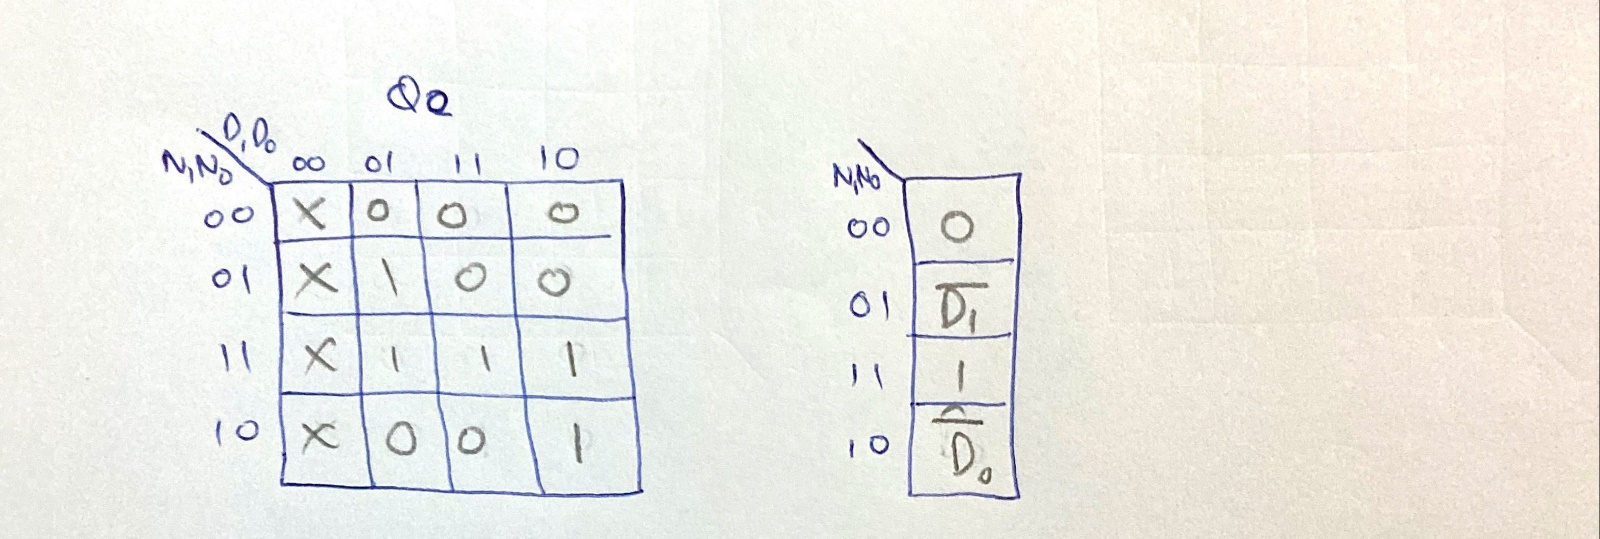 Q0
D1D0
N1N0 00 01 11 10
00 X 0 0 0
01 X 1 0 0
11 X 1 1 1
10 X 0 0 1
N1N0
00 0
01 D̅1
11 1
10 D̅0